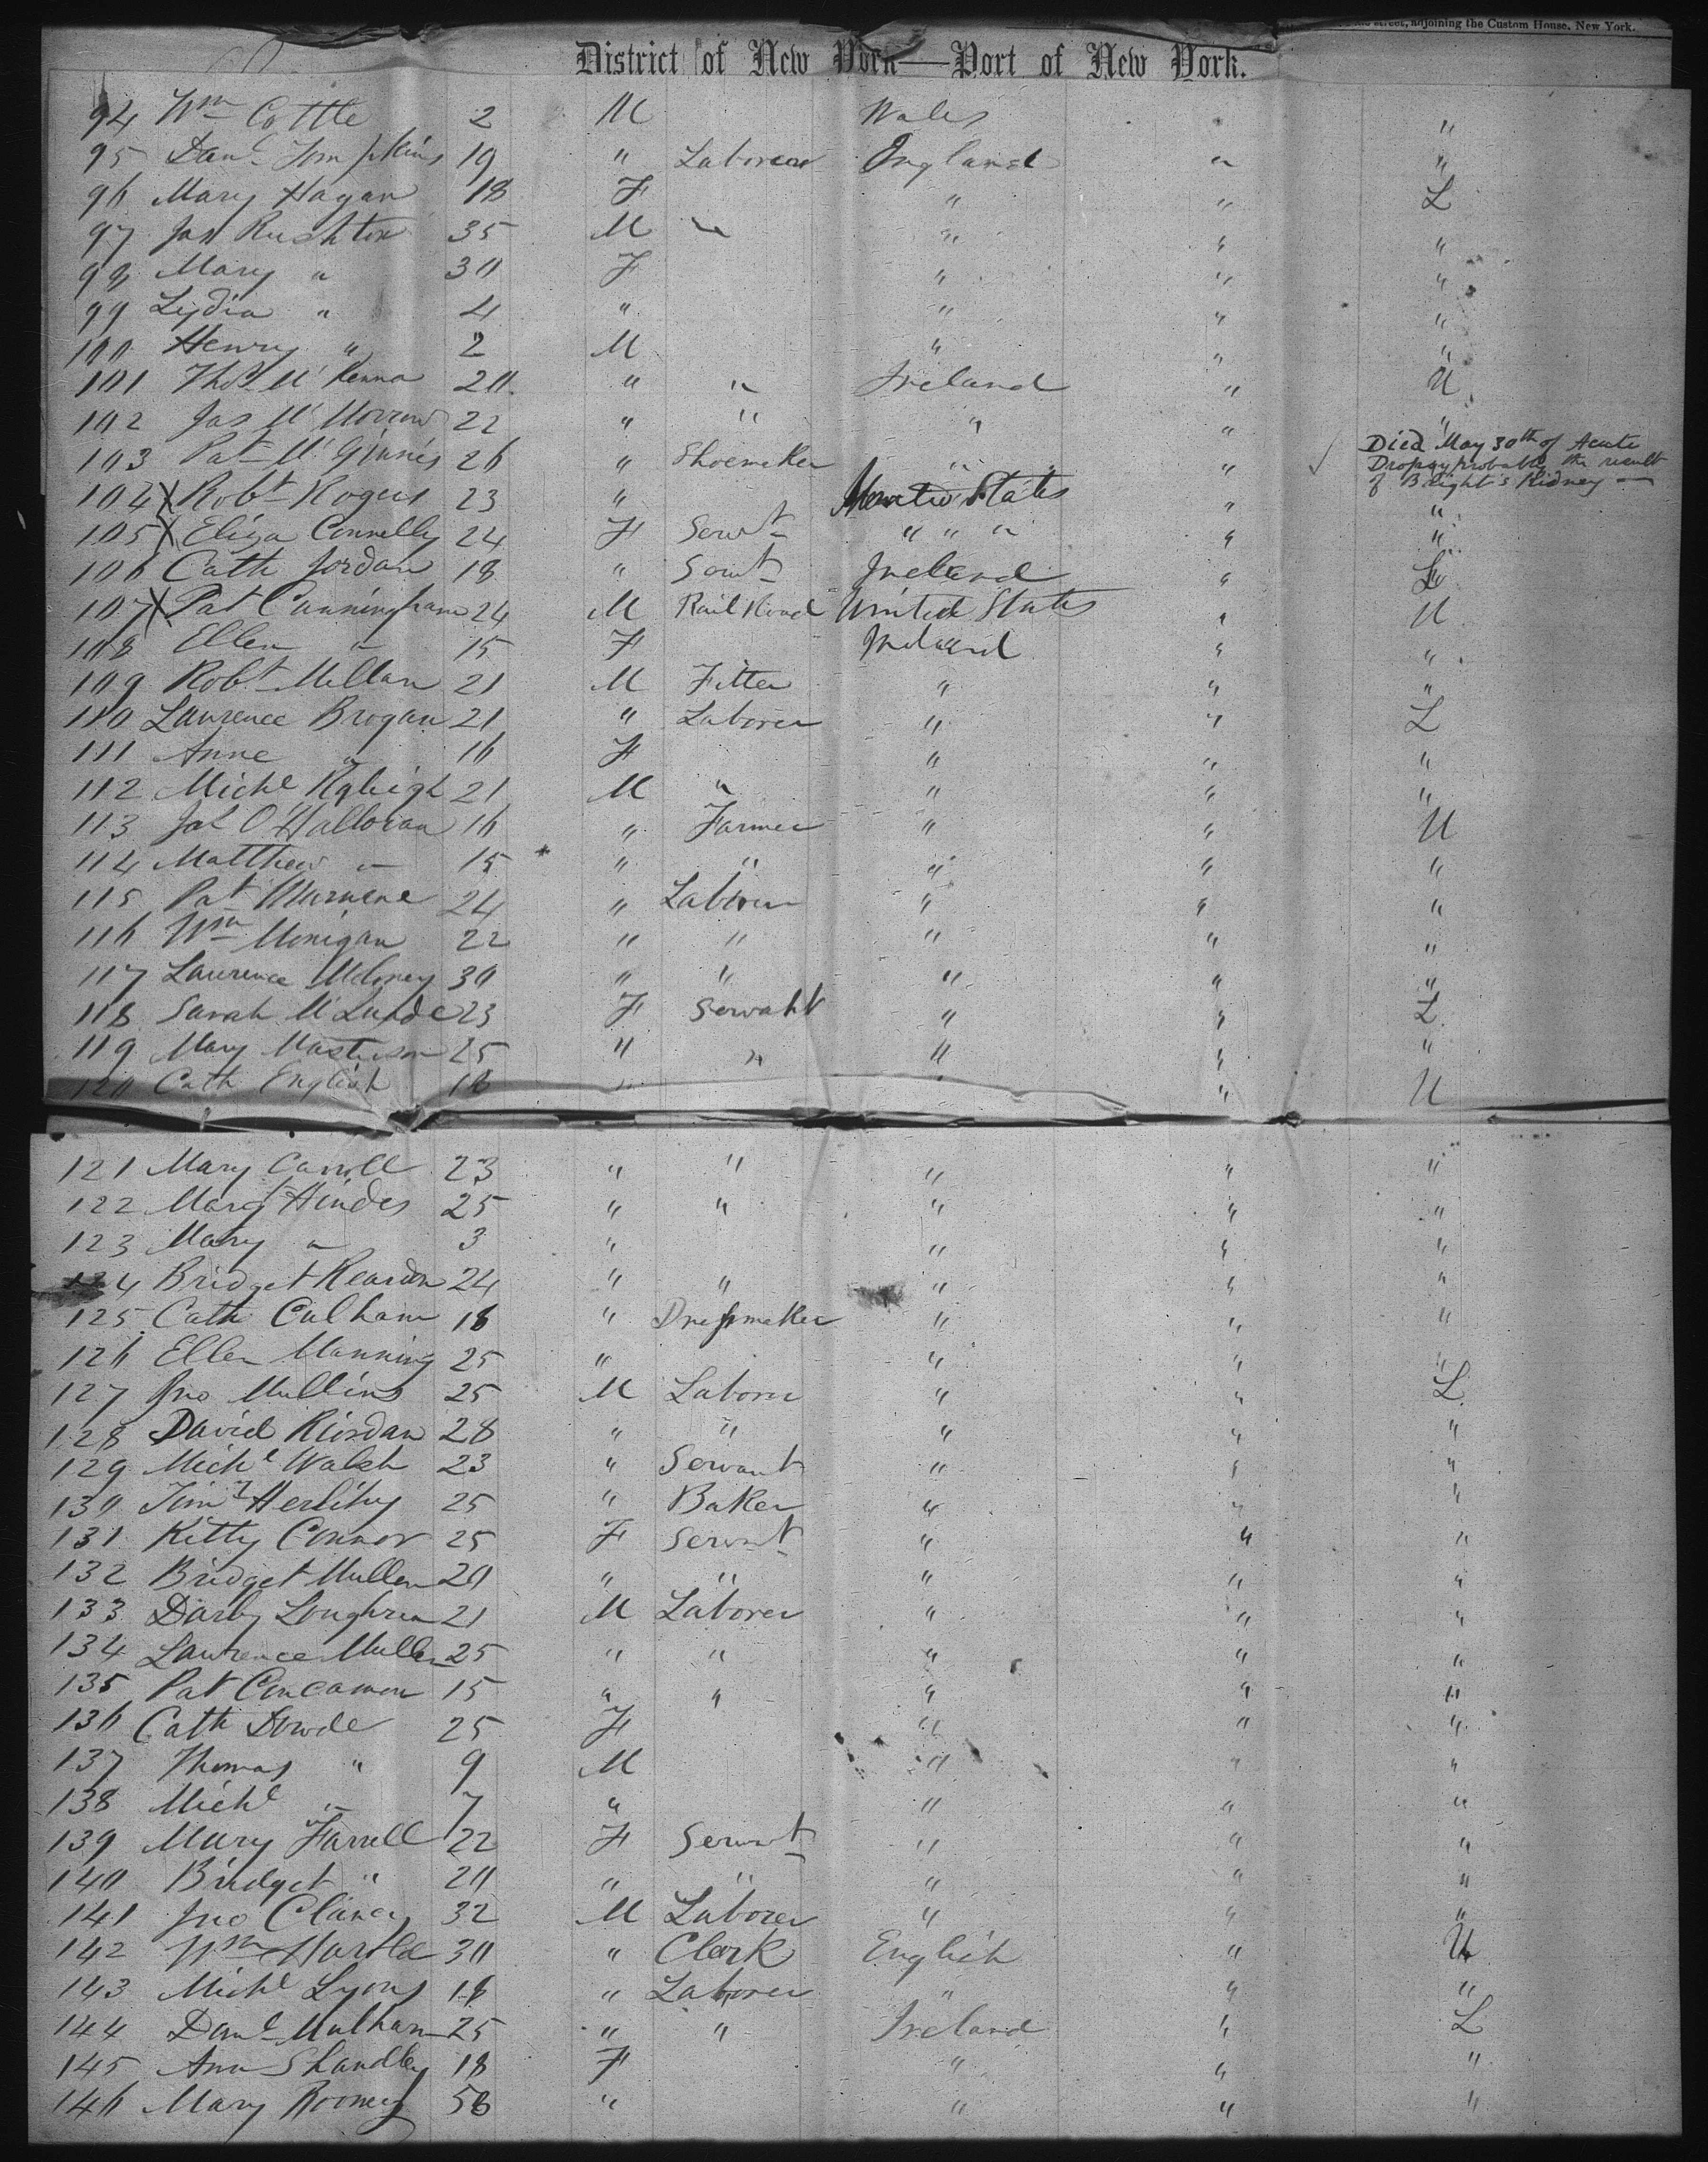 street, adjoining the Custom House, New York.
District of New York—Port of New York.
94 Wm Cottle 2 M Wales " "
95 Danl Tompkins 19 " Laborer England " "
96 Mary Hagan 18 F " " L
97 Jas Rushton 35 M " " " "
98 Mary " 30 F " " "
99 Lydia " 4 " " " "
100 Henry " 2 M " " "
101 Thos McKenna 20 " " Ireland " U
102 Jas McMorrow 22 " " " " "
103 Pat McGinnis 26 " Shoemaker " " ✓ Died May 30th of Acute
Dropsy probably the result
of Bright's Kidney —
104 X Robt Rogers 23 " States " "
105 X Eliza Connelly 24 F Servt " " " " "
106 Cath Jordan 18 " Servt Ireland " L
107 X Pat Cunningham 24 M Rail Road United States " U
108 Ellen " 15 F Ireland " "
109 Robt Mellan 21 M Fitter " " "
110 Laurence Brogan 21 " Laborer " " L
111 Anne " 16 F " " "
112 Michl 21 M " " " "
113 O'Halloran 16 " Farmer " " U
114 Matthew " 15 " " " " "
115 Pat 24 " Laborer " " "
116 Wm Monigan 22 " " " " "
117 Laurence Moloney 30 " " " " "
118 Sarah 23 F Servant " " L
119 Mary Masterson 25 " " " " "
120 Cath English 18 " " U
121 Mary Carroll 23 " " " " "
122 Mary Hindes 25 " " " " "
123 Mary " 3 " " " "
124 Bridget Reardon 24 " " " " "
125 Cath Culham 18 " Dressmaker " " "
126 Ellen Manning 25 " " " "
127 Jno Mullins 25 M Laborer " " L
128 David Riordan 28 " " " " "
129 Michl Walsh 23 " Servant " " "
130 Timy Herlihy 25 " Baker " " "
131 Kitty Connor 25 F Servnt " " "
132 Bridget Mullen 20 " " " " "
133 Darby Loughren 21 M Laborer " " "
134 Laurence Mullen 25 " " " " "
135 Pat Concannon 15 " " " " "
136 Cath Dowde 25 F " " "
137 Thomas " 9 M " " "
138 Michl " 7 " " " "
139 Mary Farrell 22 F Servnt " " "
140 Bridget " 20 " " " " "
141 Jno Clancy 32 M Laborer " " "
142 Wm Harold 30 " Clerk English " U
143 Michl Lyons 18 " Laborer " " "
144 Danl Mulhan 25 " " Ireland " L
145 Ann Shandley 18 F " " "
146 Mary Rooney 58 " " " "